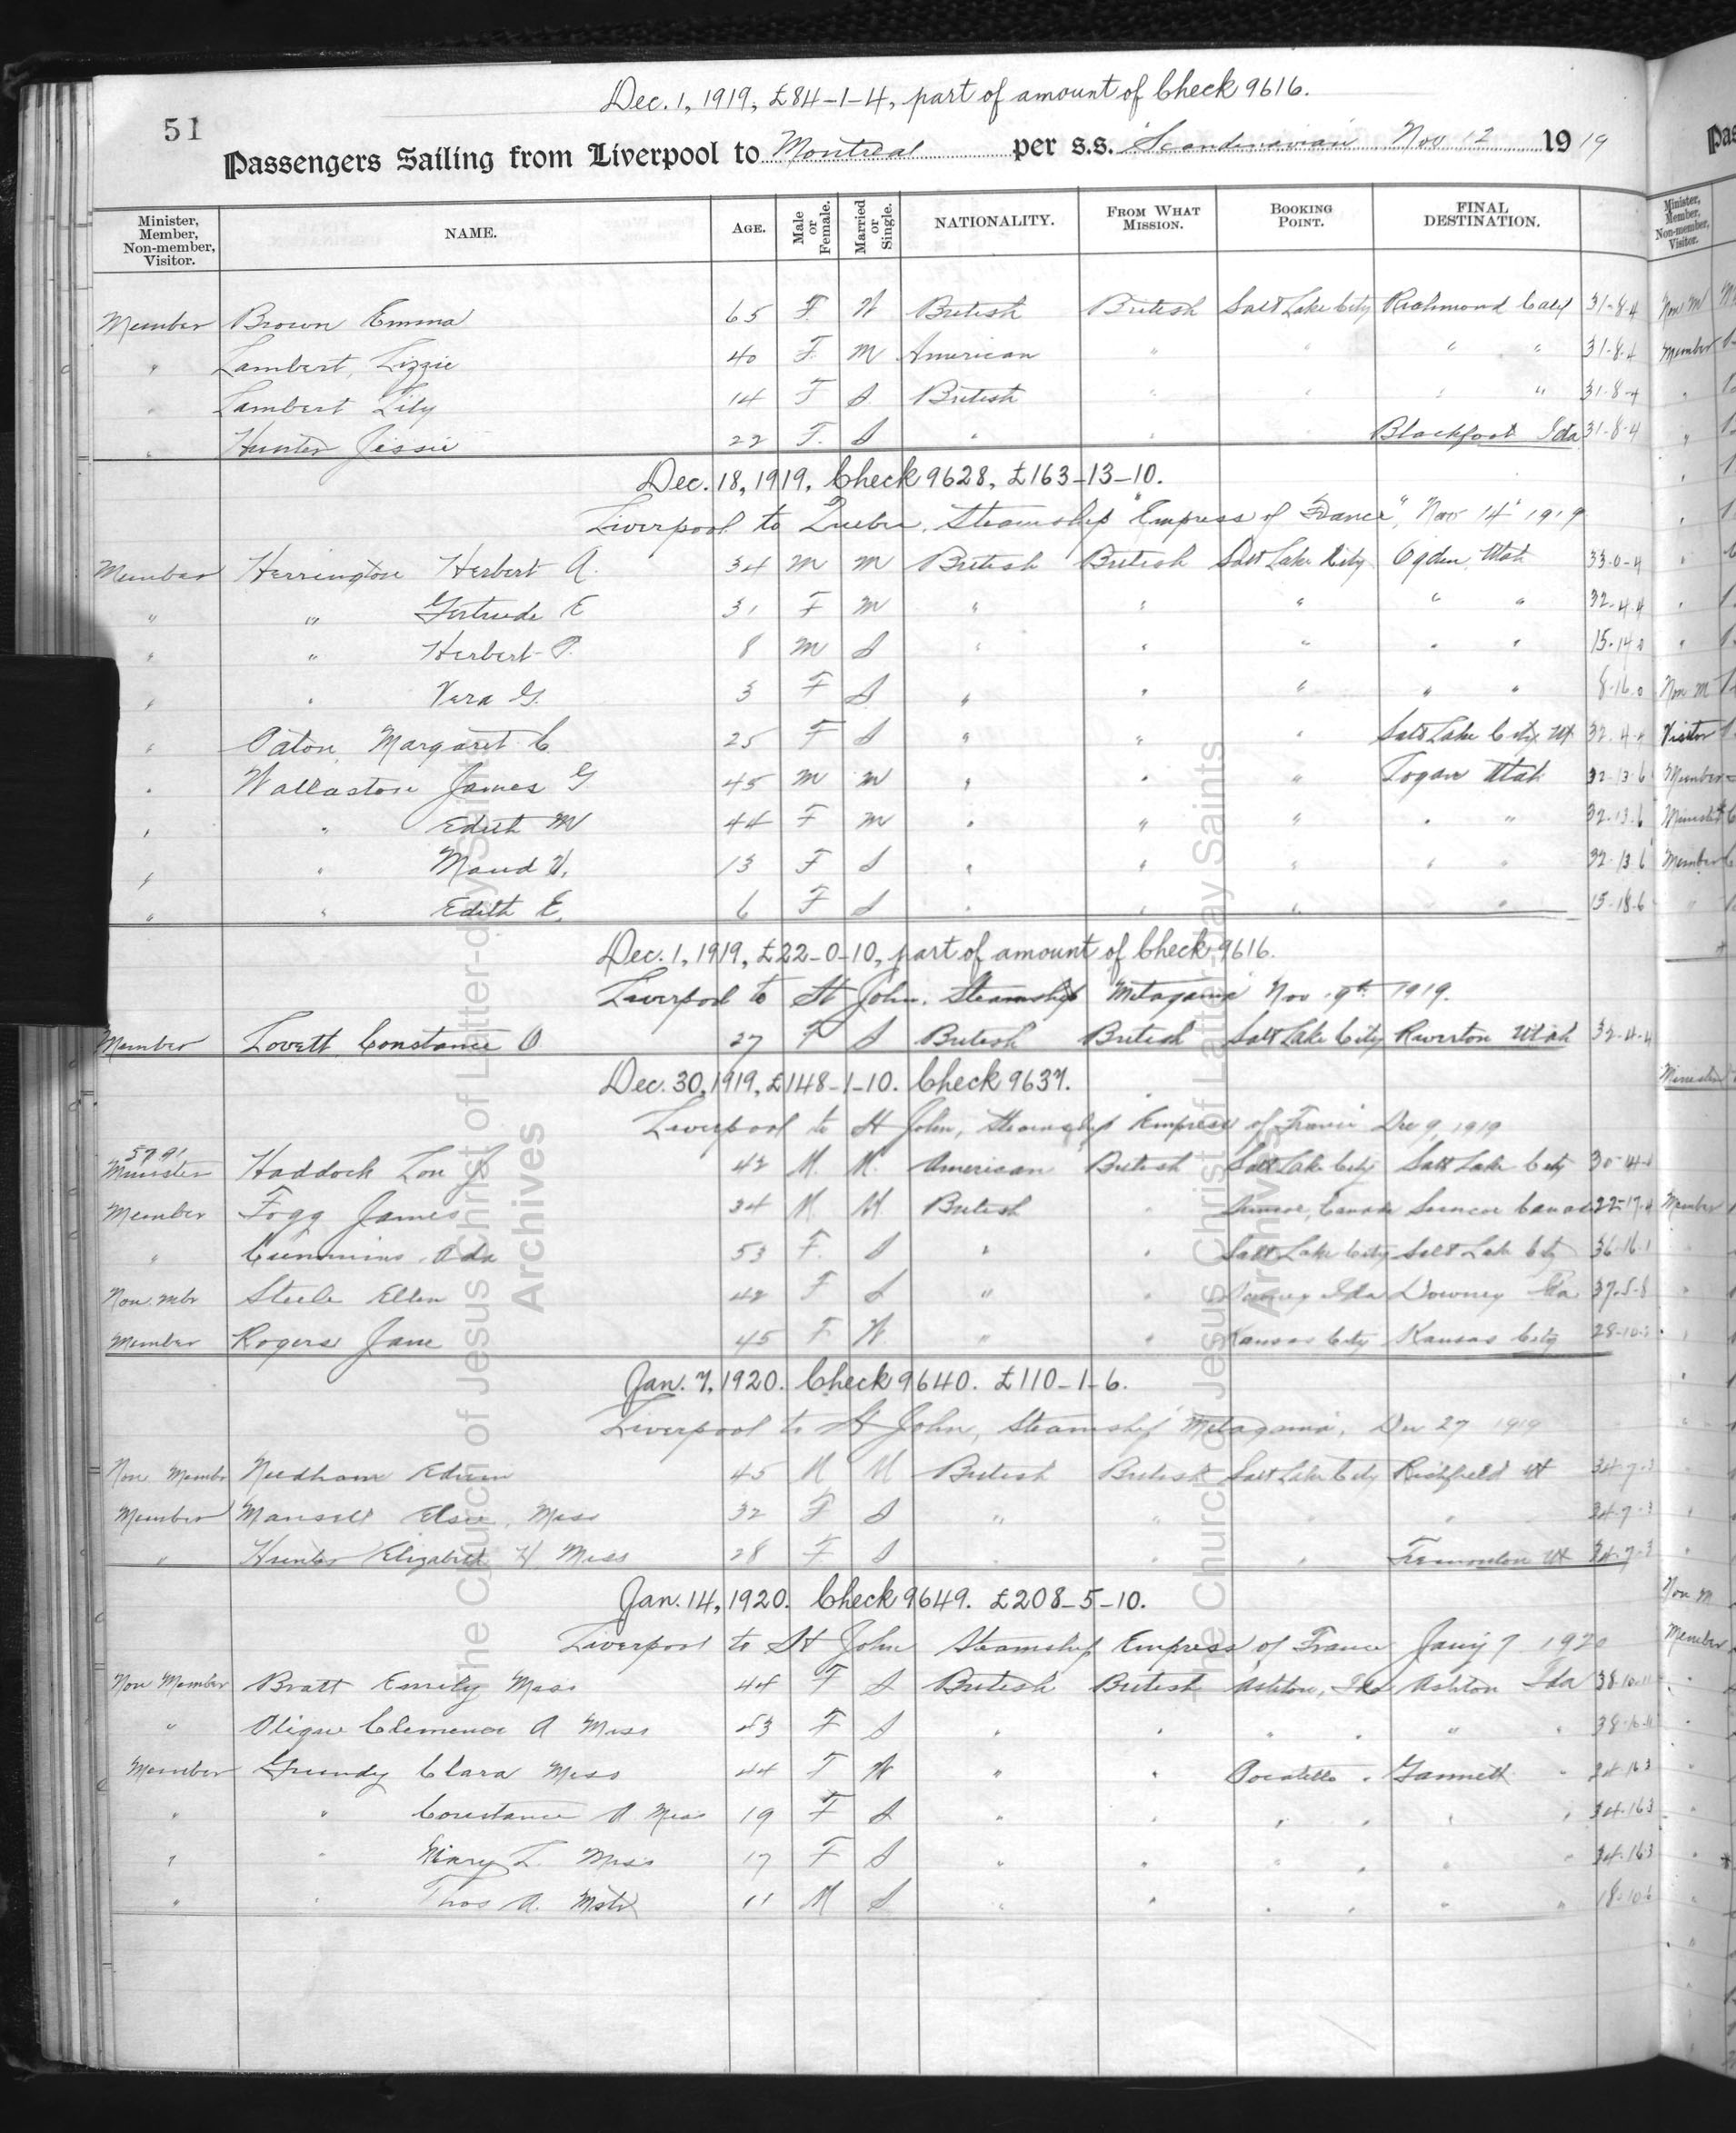 Dec. 1, 1919, £84-1-4, part of amount of Check 9616.
51
Passengers Sailing from Liverpool to Montreal per s.s. "Scandinavian" Nov 12 1919
Minister, Member, Non-member, Visitor. NAME. AGE. Male or Female. Married or Single. NATIONALITY. FROM WHAT MISSION. BOOKING POINT. FINAL DESTINATION.
Member Brown Emma 65 F. W British British Salt Lake City Richmond Calif 31-8-4
" Lambert, Lizzie 40 F. M American " " " " 31-8-4
" Lambert Lily 14 F S. British " " " " 31-8-4
" Hunter Jessie 22 F. S " " " Blackfoot Ida 31-8-4
Dec. 18, 1919, Check 9628, £163-13-10.
Liverpool to Quebec, Steamship "Empress of France", Nov 14 1919
Member Herrington Herbert A. 34 M M British British Salt Lake City Ogden, Utah 33-0-4
" " Gertrude E 31 F M " " " " " 32-4-4
" " Herbert P. 8 M S " " " " " 15-14-0
" " Vera G. 3 F S " " " " " 8-16-0
" Paton, Margaret C 25 F S " " " Salt Lake City Ut 32-4-4
" Wallaston James G 45 M M " " " Logan Utah 32-13-6
" " Edith M 44 F M " " " " " 32-13-6
" " Maud V. 13 F S " " " " " 32-13-6
" " Edith E. 6 F S " " " " 15-18-6
Dec. 1, 1919, £22-0-10, part of amount of Check 9616.
Liverpool to St John, Steamship Metagama Nov 19th 1919.
Member Lovett Constance O 27 F S British British Salt Lake City Riverton Utah 32-4-4
Dec. 30, 1919, £148-1-10. Check 9637.
Liverpool to St John, Steamship Empress of France Dec 9, 1919
Minister Haddock Lon J 42 M. M. American British Salt Lake City Salt Lake City
Member Fogg James 34 M M. British " Simcoe, Canada Simcoe Canada
" Cummins Ada 53 F. S " " Salt Lake City Salt Lake City 36-16-1
Non. mbr Steele Ellen 42 F S " " Downey Ida Downey Ida 37-5-8
Member Rogers Jane 45 F W. " " Kansas City Kansas City
Jan. 7, 1920. Check 9640. £110-1-6.
Liverpool to St John, Steamship Metagama, Dec 27 1919
Non Membr Needham Edwin 45 M M British British Salt Lake City Richfield Ut 34-7-3
Member Mansell Elsie, Miss 32 F S " " " " 34-7-3
" Hunter Elizabeth H. Miss 28 F S " " " Tremonton Ut 34-7-3
Jan. 14, 1920. Check 9649. £208-5-10.
Liverpool to St John Steamship Empress of France Jany 7 1920
Non Member Bratt Emily Miss 44 F S British British Ashton, Ida Ashton Ida 38-10-11
" Clemence A Miss 43 F S " " " " " "
Member Grundy Clara Miss 44 F W " " Pocatello " Gannett "
" " Constance A Miss 19 F S " " " " " " 34-16-3
" " Mary L. Miss 17 F S " " " " " " 34-16-3
" " Thos A. Mstr 11 M S " " " " " " 18-10-6
The Church of Jesus Christ of Latter-day Saints
Archives
The Church of Jesus Christ of Latter-day Saints
Archives